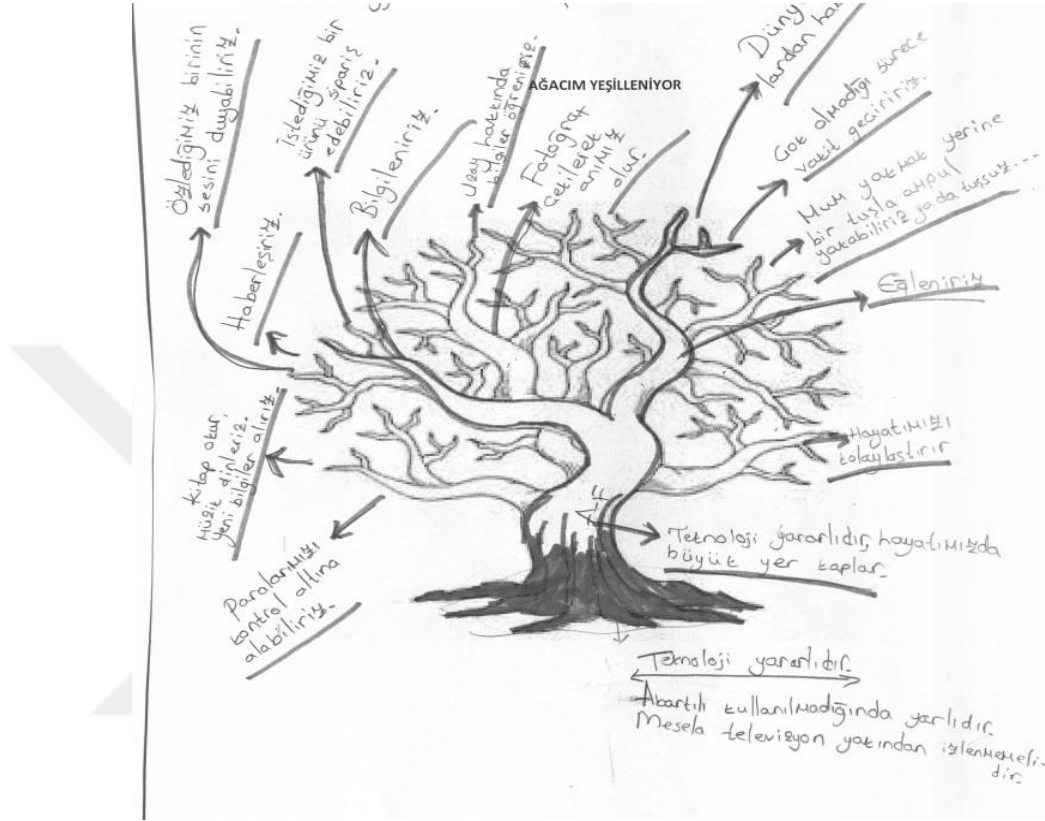 AĞACIM YEŞİLLENİYOR
Özlediğimiz birinin
sesini duyabiliriz.
İstediğimiz bir
ürünü sipariş
edebiliriz.
Haberleşiriz.
Bilgileniriz.
Uzay hakkında
bilgiler öğreniriz.
Fotoğraf
çekilerek
anımız
olur.
Düny
lardan ha
Çok olmadığı sürece
vakit geçiririz.
Mum yakmak yerine
bir tuşla ampul
yakabiliriz yada tuşsuz...
Eğleniriz
Hayatımızı
kolaylaştırır
Kitap okur,
müzik dinleriz.
yeni bilgiler alırız.
Paralarımızı
kontrol altına
alabiliriz.
Teknoloji yararlıdır, hayatımızda
büyük yer kaplar.
Teknoloji yararlıdır.
Abartılı kullanılmadığında yarlıdır.
Mesela televizyon yakından izlenmemeli-
dir.